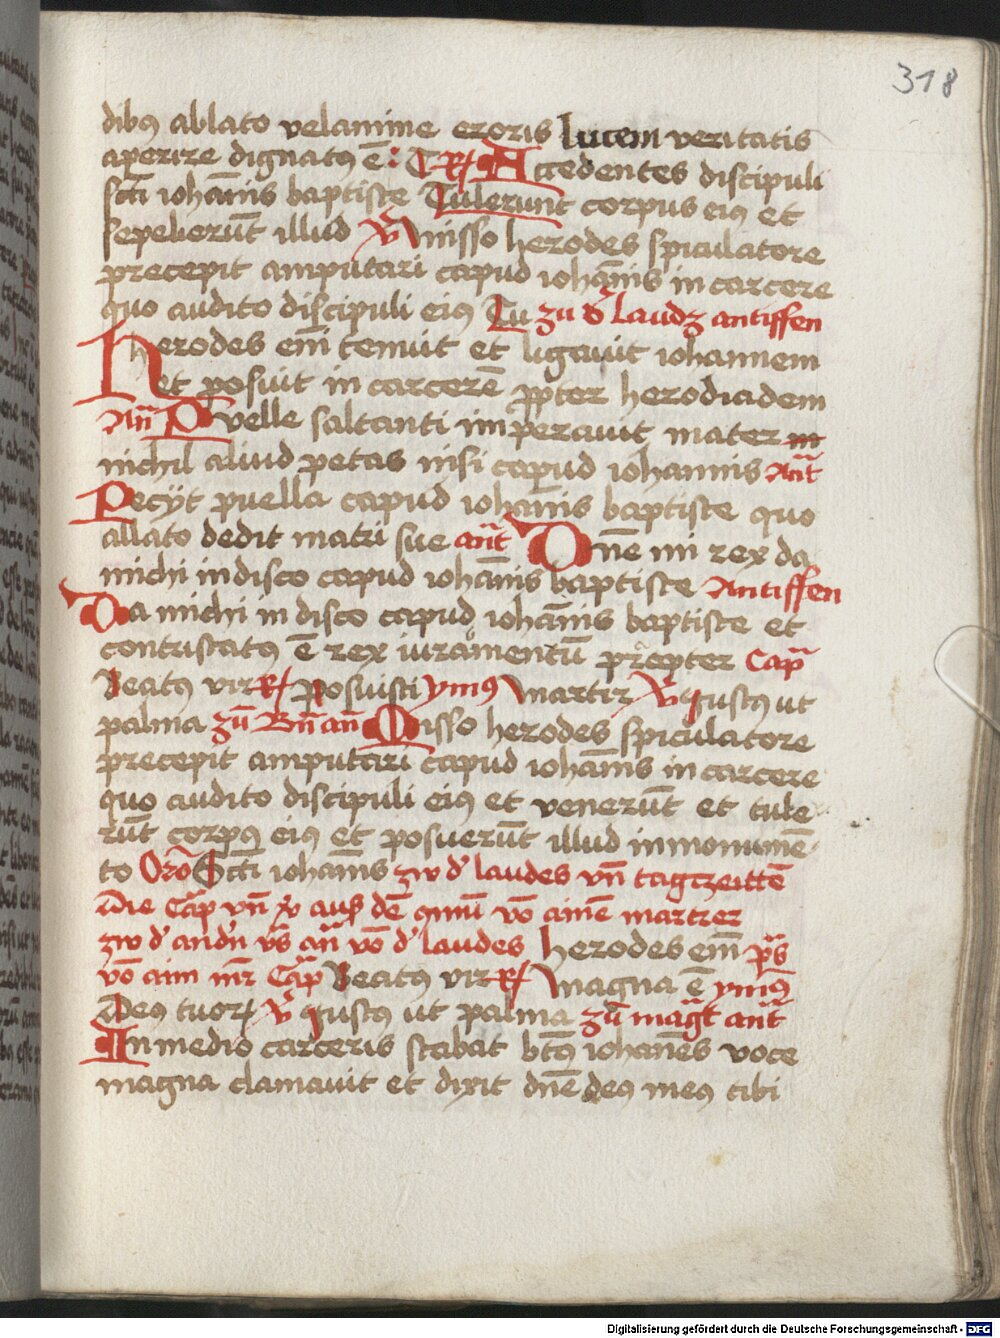 318
dibꝰ ablato velamine eroris lucem veritatis
aperire dignatꝰ ē : T R Accedentes discipuli
scti ioha̅nis baptiste Tulerunt corpus eiꝰ et
sepelieru̅t illud V Misso herodes spiculatore
precepit amputari capud ioha̅nis in carcere
quo audito discipuli eiꝰ Tu zu d̕ laudꝫ antiffen
Herodes em̅ temuit et ligauit iohannem
et posuit in carcere̅ ppter herodiadem
An̅ Puelle saltanti imperauit mater
nichil aliud petas nisi capud iohannis An̅t
Pecÿt puella capud ioha̅nis baptiste quo
allato dedit matri sue an̅t Dn̅e mi rex da
michi in disco capud ioha̅nis baptiste Antiffen
Da michi in disco capud ioha̅nis baptiste et
contristatꝰ ē rex iuramentu̅ Cap̅
Beatꝰ vir R posuisti ymꝰ Martir V Justꝰ ut
palma zu̅ Bn̅ an̅ Misso herodes spiculatore
precepit amputari capud ioha̅nis in carcere
quo audito discipuli eiꝰ et veneru̅t et tule
ru̅t corpꝰ eiꝰ et posueru̅t illud in monume̅
to Oro̅ Scti ioha̅nis zw d̕ laudes vn̅ tagzeitte̅
Die Cap̅ vn̅ V aus de̅ vo̅ aine̅ martrer
zw d̕ andn̕ vs̅ an̅ vo̅ d̕ laudes herodes em̅ ps̅
vo̅ aim mr̅ Cap̅ Beatꝰ vir R Magna ē ymꝰ
Deus tuoꝝ V Justꝰ ut palma zu̅ mag̅t an̅t
In medio carceris stabat bt̅ꝰ ioha̅nes voce
magna clamauit et dixit dn̅e deꝰ meꝰ tibi
Digitalisierung gefördert durch die Deutsche Forschungsgemeinschaft - DFG